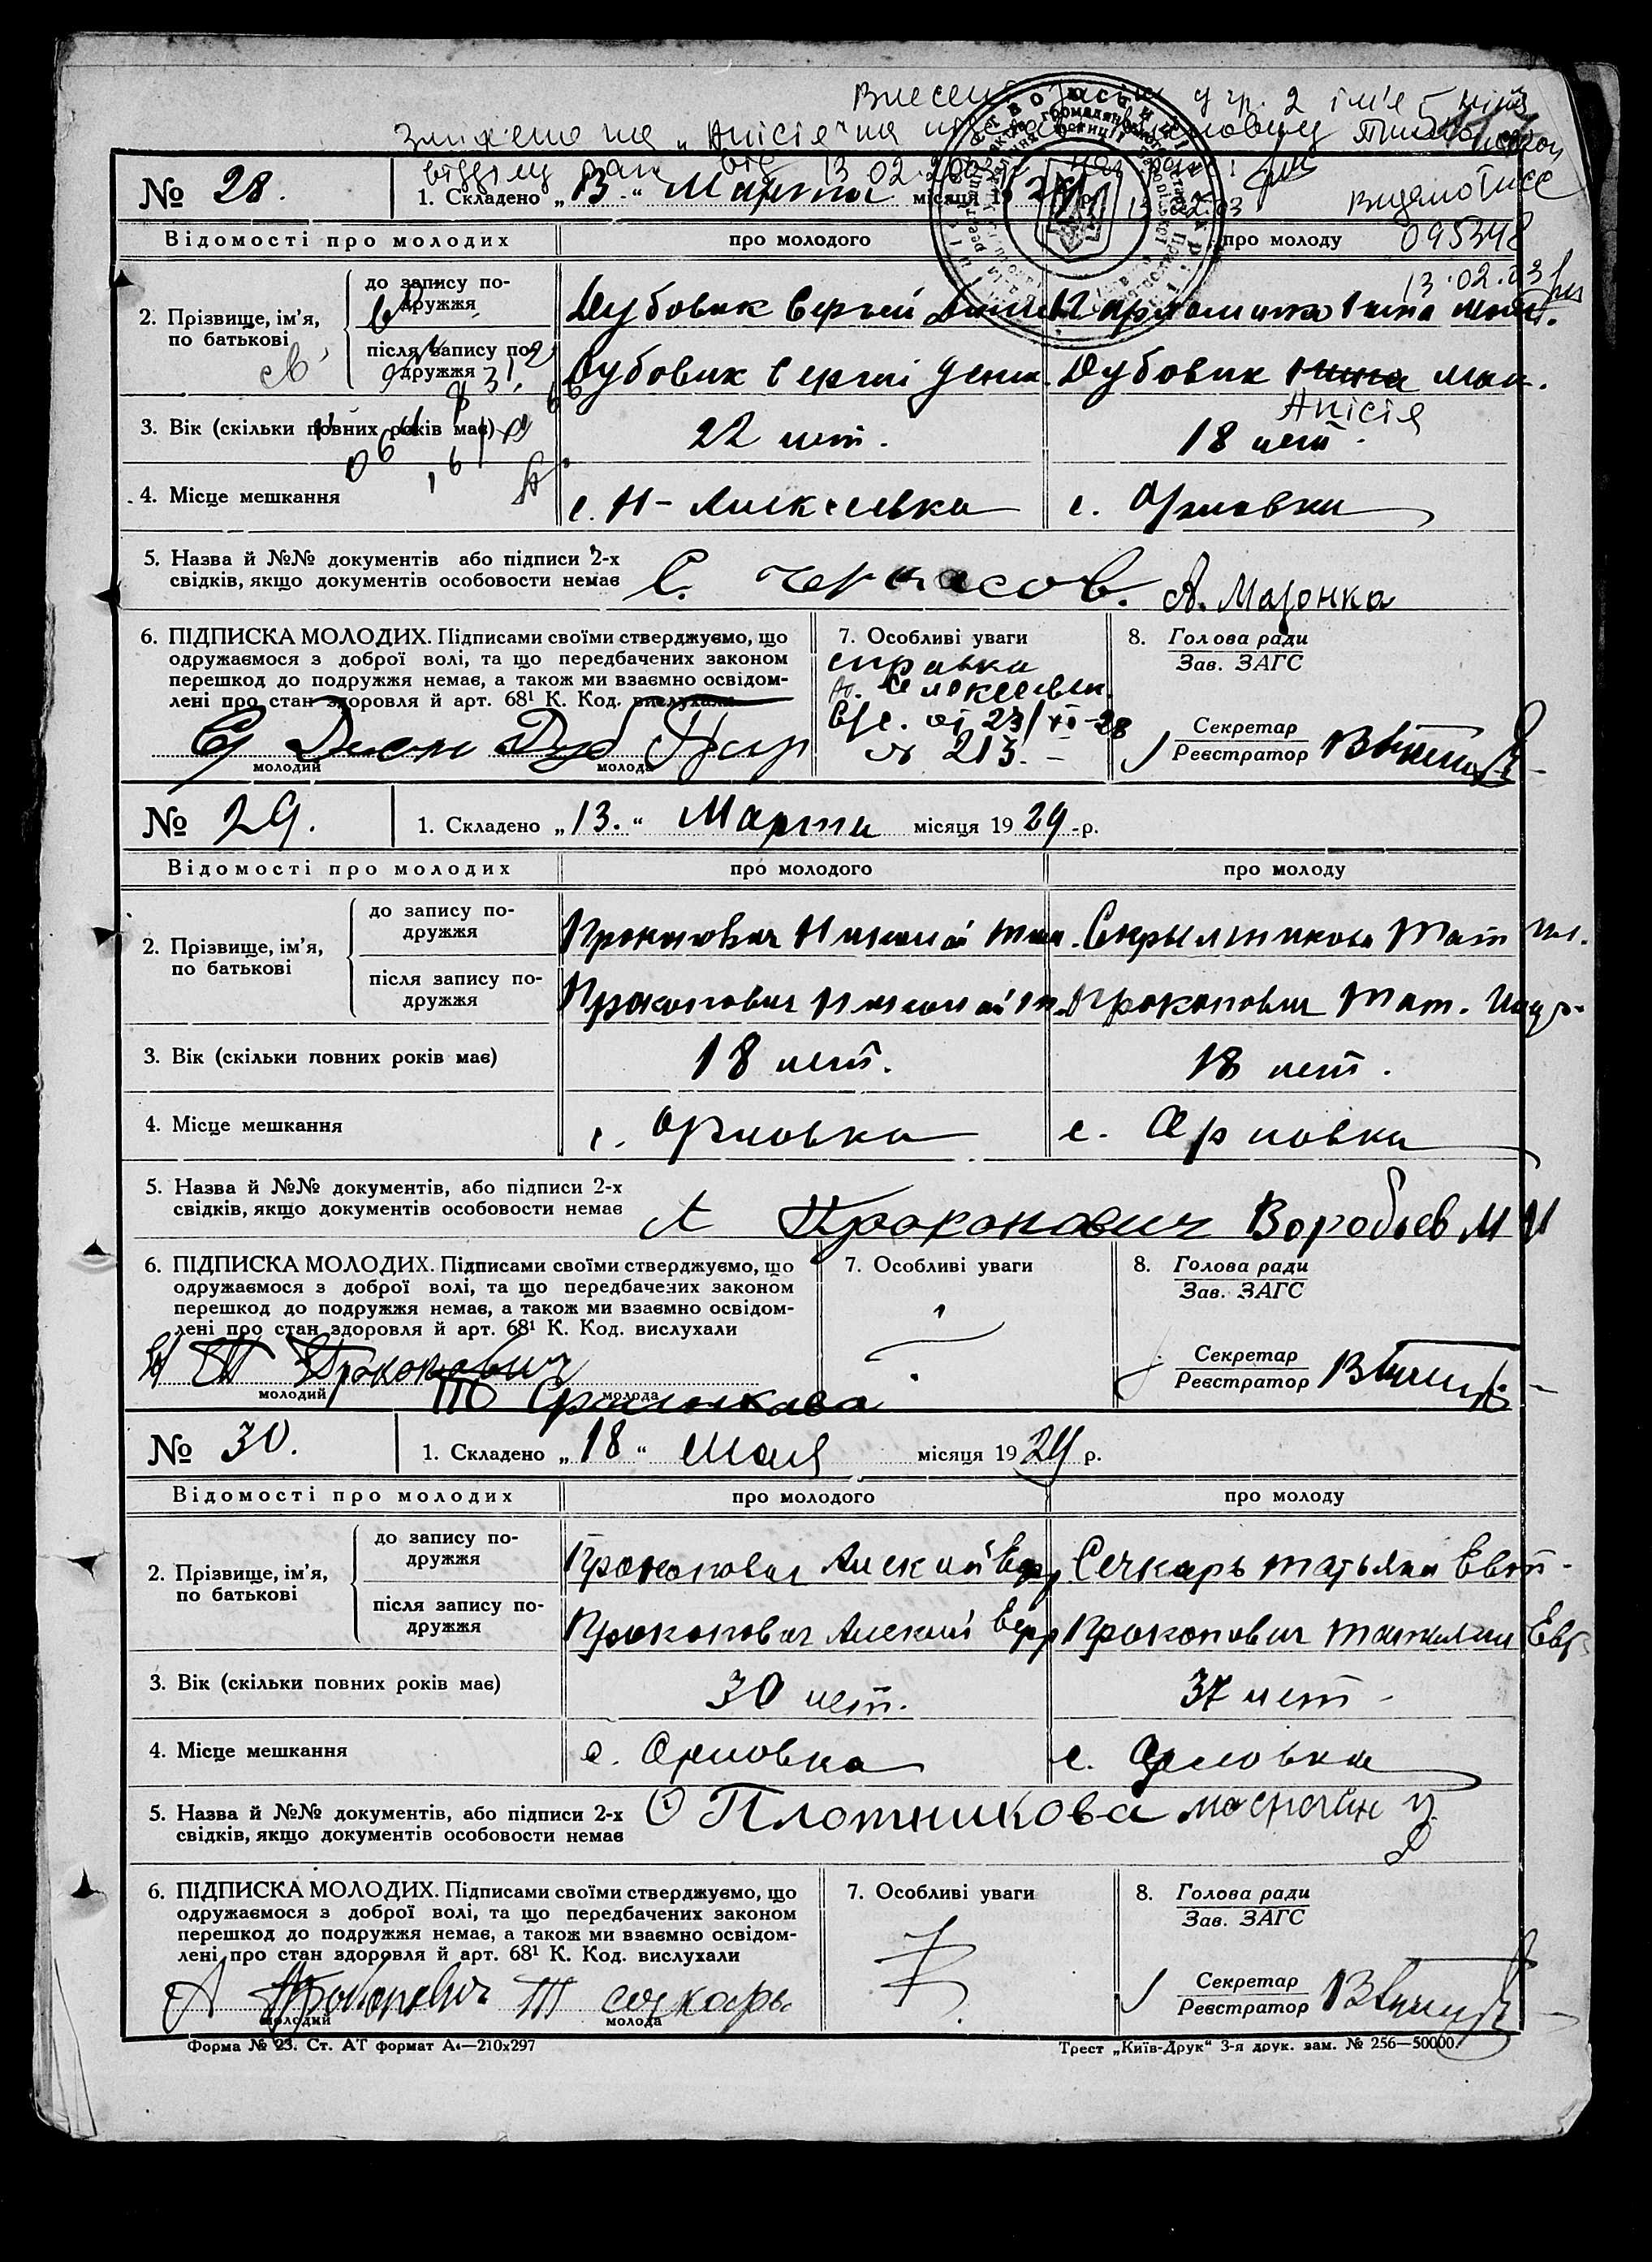 у гр. 2 ім'я
на „Анісія" на
відділу від 13.02.2003
№ 28. 1. Складено „13." Марта місяця 19 29 р.
видано
095348
13.02.03
Відомості про молодих про молодого про молоду
2. Прізвище, ім'я, по батькові
до запису подружжя Дубовик Сергей
після запису подружжя Дубовик Сергей Дубовик Нина
Анісія
3. Вік (скільки повних років має) 22 лет. 18 лет.
4. Місце мешкання с. Н-Алексеевка с. Орловка
5. Назва й №№ документів або підписи 2-х
свідків, якщо документів особовости немає С. Черкасов. А.
6. ПІДПИСКА МОЛОДИХ. Підписами своїми стверджуємо, що
одружаємося з доброї волі, та що передбачених законом
перешкод до подружжя немає, а також ми взаємно освідом-
лені про стан здоровля й арт. 68¹ К. Код. вислухали
молодий молода
7. Особливі уваги
справка
№ 213.
8. Голова ради
Зав. ЗАГС
Секретар
Реєстратор
№ 29. 1. Складено „13." Марта місяця 19 29 -р.
Відомості про молодих про молодого про молоду
2. Прізвище, ім'я,
по батькові
до запису по-
дружжя Прокопович Николай Тим. Скрыльникова Тат
після запису по-
дружжя Прокопович Николай Т. Прокопович Тат.
3. Вік (скільки повних років має) 18 лет. 18 лет.
4. Місце мешкання с. Орловка с. Орловка
5. Назва й №№ документів, або підписи 2-х
свідків, якщо документів особовости немає А Прокопович Воробьев М И
6. ПІДПИСКА МОЛОДИХ. Підписами своїми стверджуємо, що
одружаємося з доброї волі, та що передбачених законом
перешкод до подружжя немає, а також ми взаємно освідом-
лені про стан здоровля й арт. 68¹ К. Код. вислухали
Н Т Прокопович
молодий молода
7. Особливі уваги
8. Голова ради
Зав. ЗАГС
Секретар
Реєстратор
№ 30. 1. Складено „18" Мая місяця 19 29 р.
Відомості про молодих про молодого про молоду
2. Прізвище, ім'я,
по батькові
до запису по-
дружжя Прокопович Алексей Сечкарь Татьяна Евт
після запису по-
дружжя Прокопович Алексей Прокопович Татьяна
3. Вік (скільки повних років має) 30 лет. 37 лет
4. Місце мешкання с. Орловка с. Орловка
5. Назва й №№ документів, або підписи 2-х
свідків, якщо документів особовости немає О Плотникова
6. ПІДПИСКА МОЛОДИХ. Підписами своїми стверджуємо, що
одружаємося з доброї волі, та що передбачених законом
перешкод до подружжя немає, а також ми взаємно освідом-
лені про стан здоровля й арт. 68¹ К. Код. вислухали
А Т
молодий молода
7. Особливі уваги
8. Голова ради
Зав. ЗАГС
Секретар
Реєстратор
Форма № 23. Ст. АТ формат А4—210х297 Трест „Київ-Друк" 3-я друк. зам. № 256—50000.